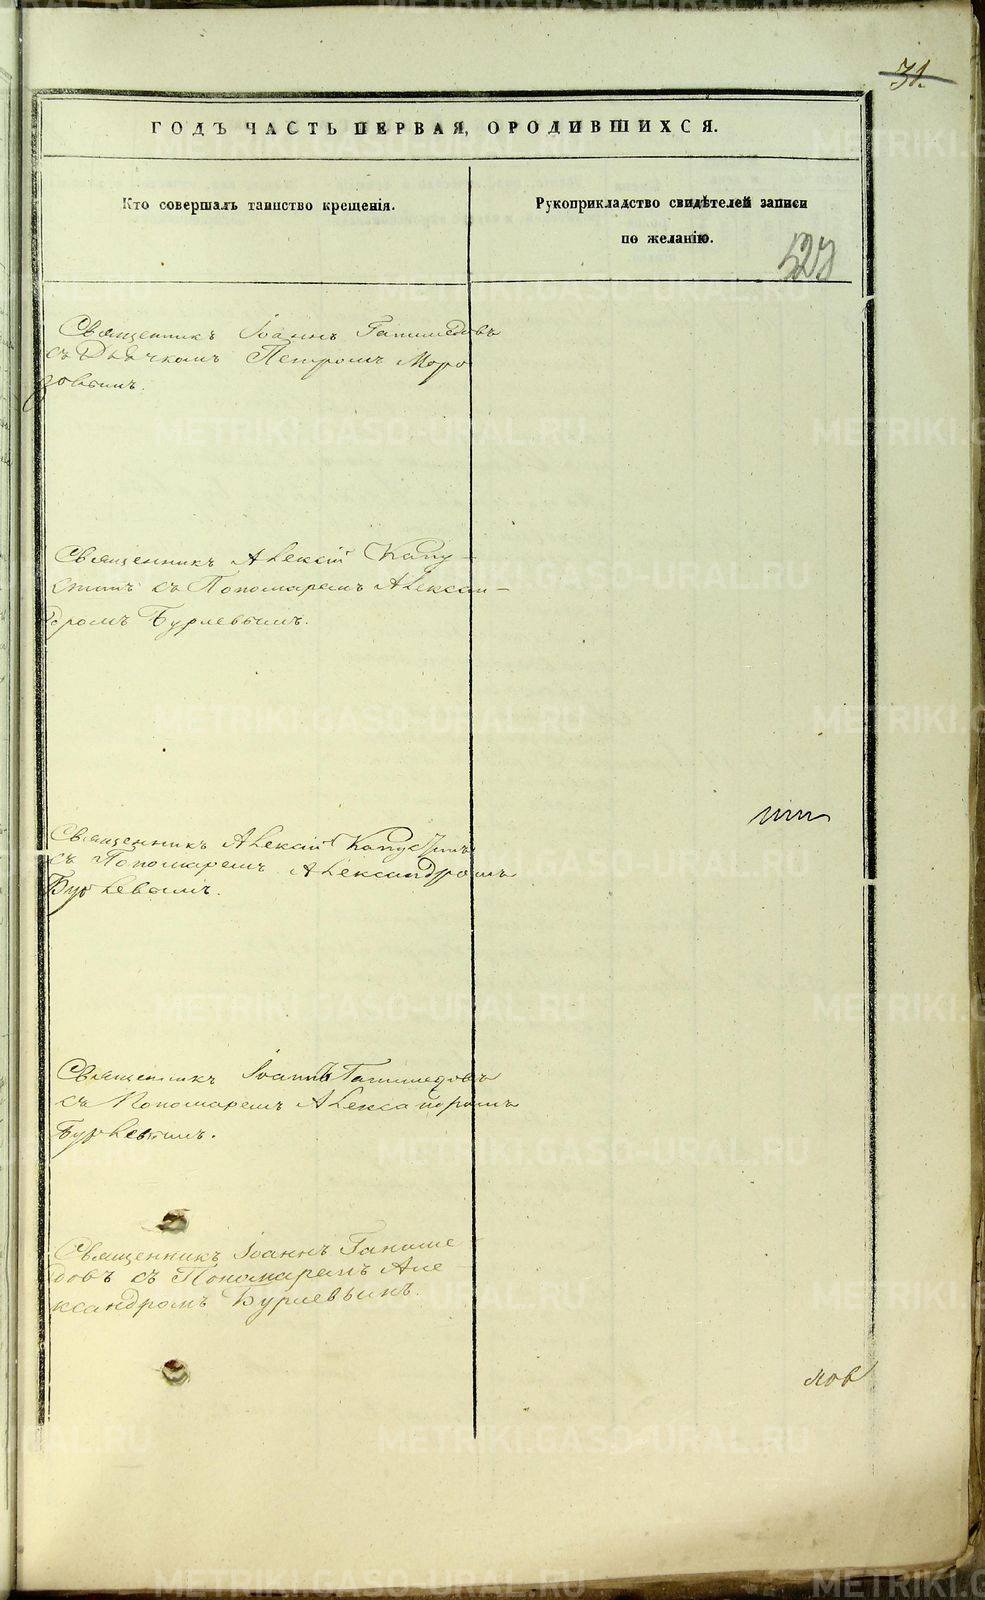 31.
ГОДЪ ЧАСТЬ ПЕРВАЯ, ОРОДИВШИХСЯ.
Кто совершалъ таинство крещенія.
Рукоприкладство свидѣтелей записи
по желанію.
527
Священникъ Іоаннъ Ганимедовъ
съ Дьячкомъ Петромъ Моро
зовымъ.
Священникъ Алексій Капу-
стинъ съ Пономаремъ Алексан-
дромъ Бурлевымъ.
Священникъ Алексій Капустинъ
съ Пономаремъ Александромъ
Бурлевымъ.
Священникъ Іоаннъ Ганимедовъ
съ Пономаремъ Александромъ
Бурлевымъ.
Священникъ Іоаннъ Ганиме
довъ съ Пономаремъ Але
ксандромъ Бурлевымъ.
лов
METRIKI.GASO-URAL.RU